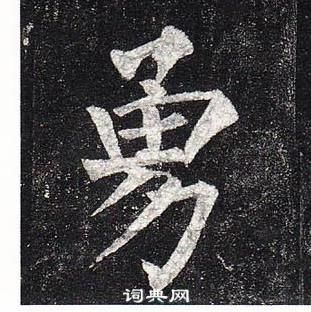 勇
词典网